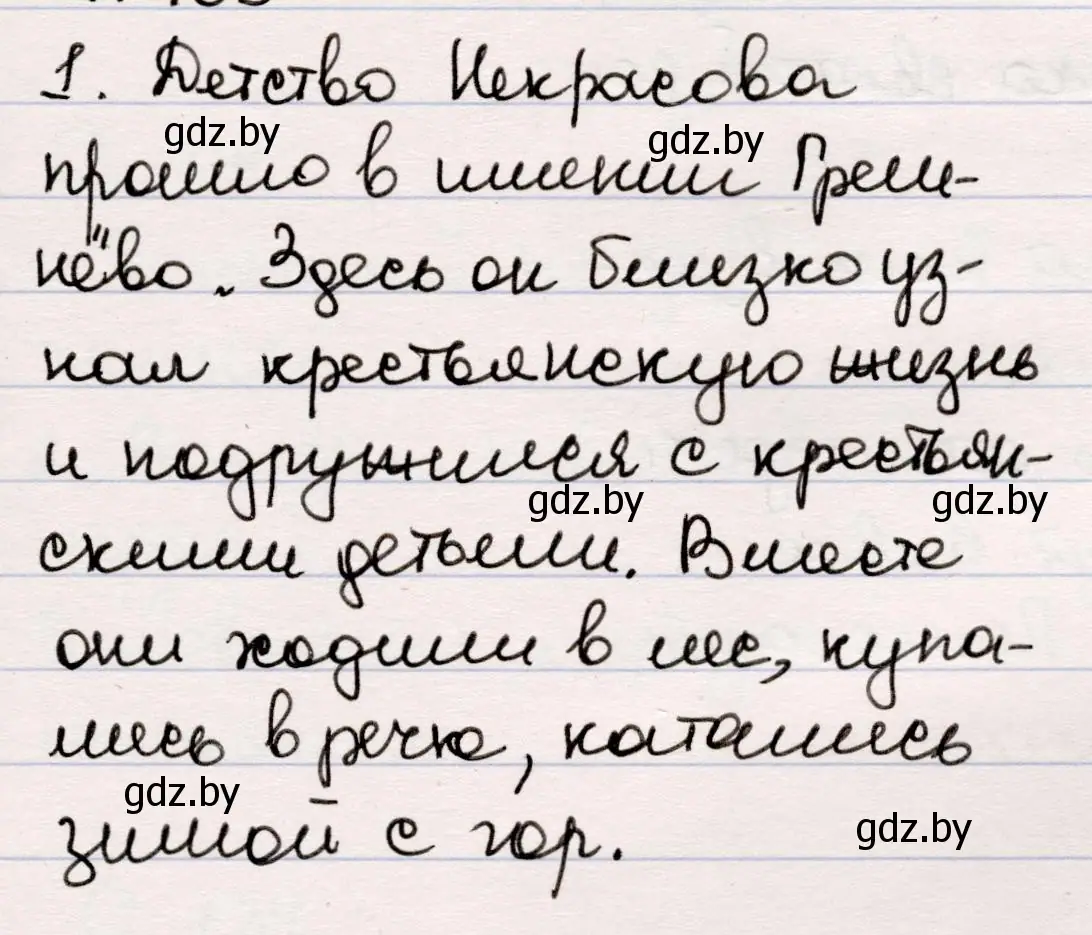 1. Детство Некрасова
gdz.by gdz.by
прошло в имении Греш-
нёво. Здесь он близко уз-
нал крестьянскую жизнь
и подружился с крестьян-
gdz.by gdz.by
скими детьми. Вместе
они ходили в лес, купа-
лись в речке, катались
gdz.by gdz.by
зимой с гор.